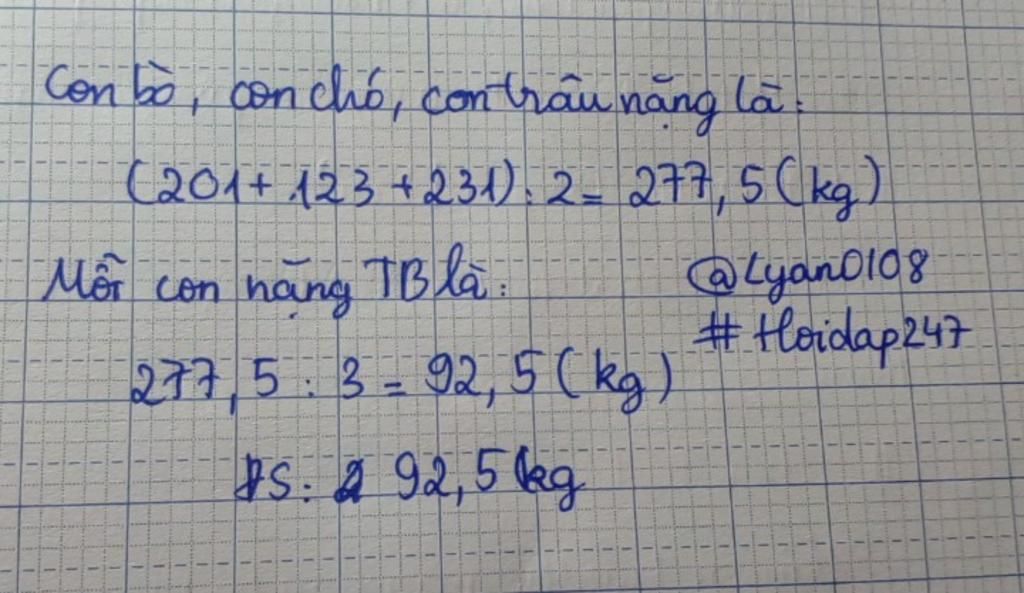 Con bò, con chó, con trâu nặng là:
(201 + 123 + 231) : 2 = 277, 5 (kg)
Mỗi con nặng TB là:
@Lyan0108
# Hoidap247
277, 5 : 3 = 92, 5 (kg)
ĐS: 92, 5 kg